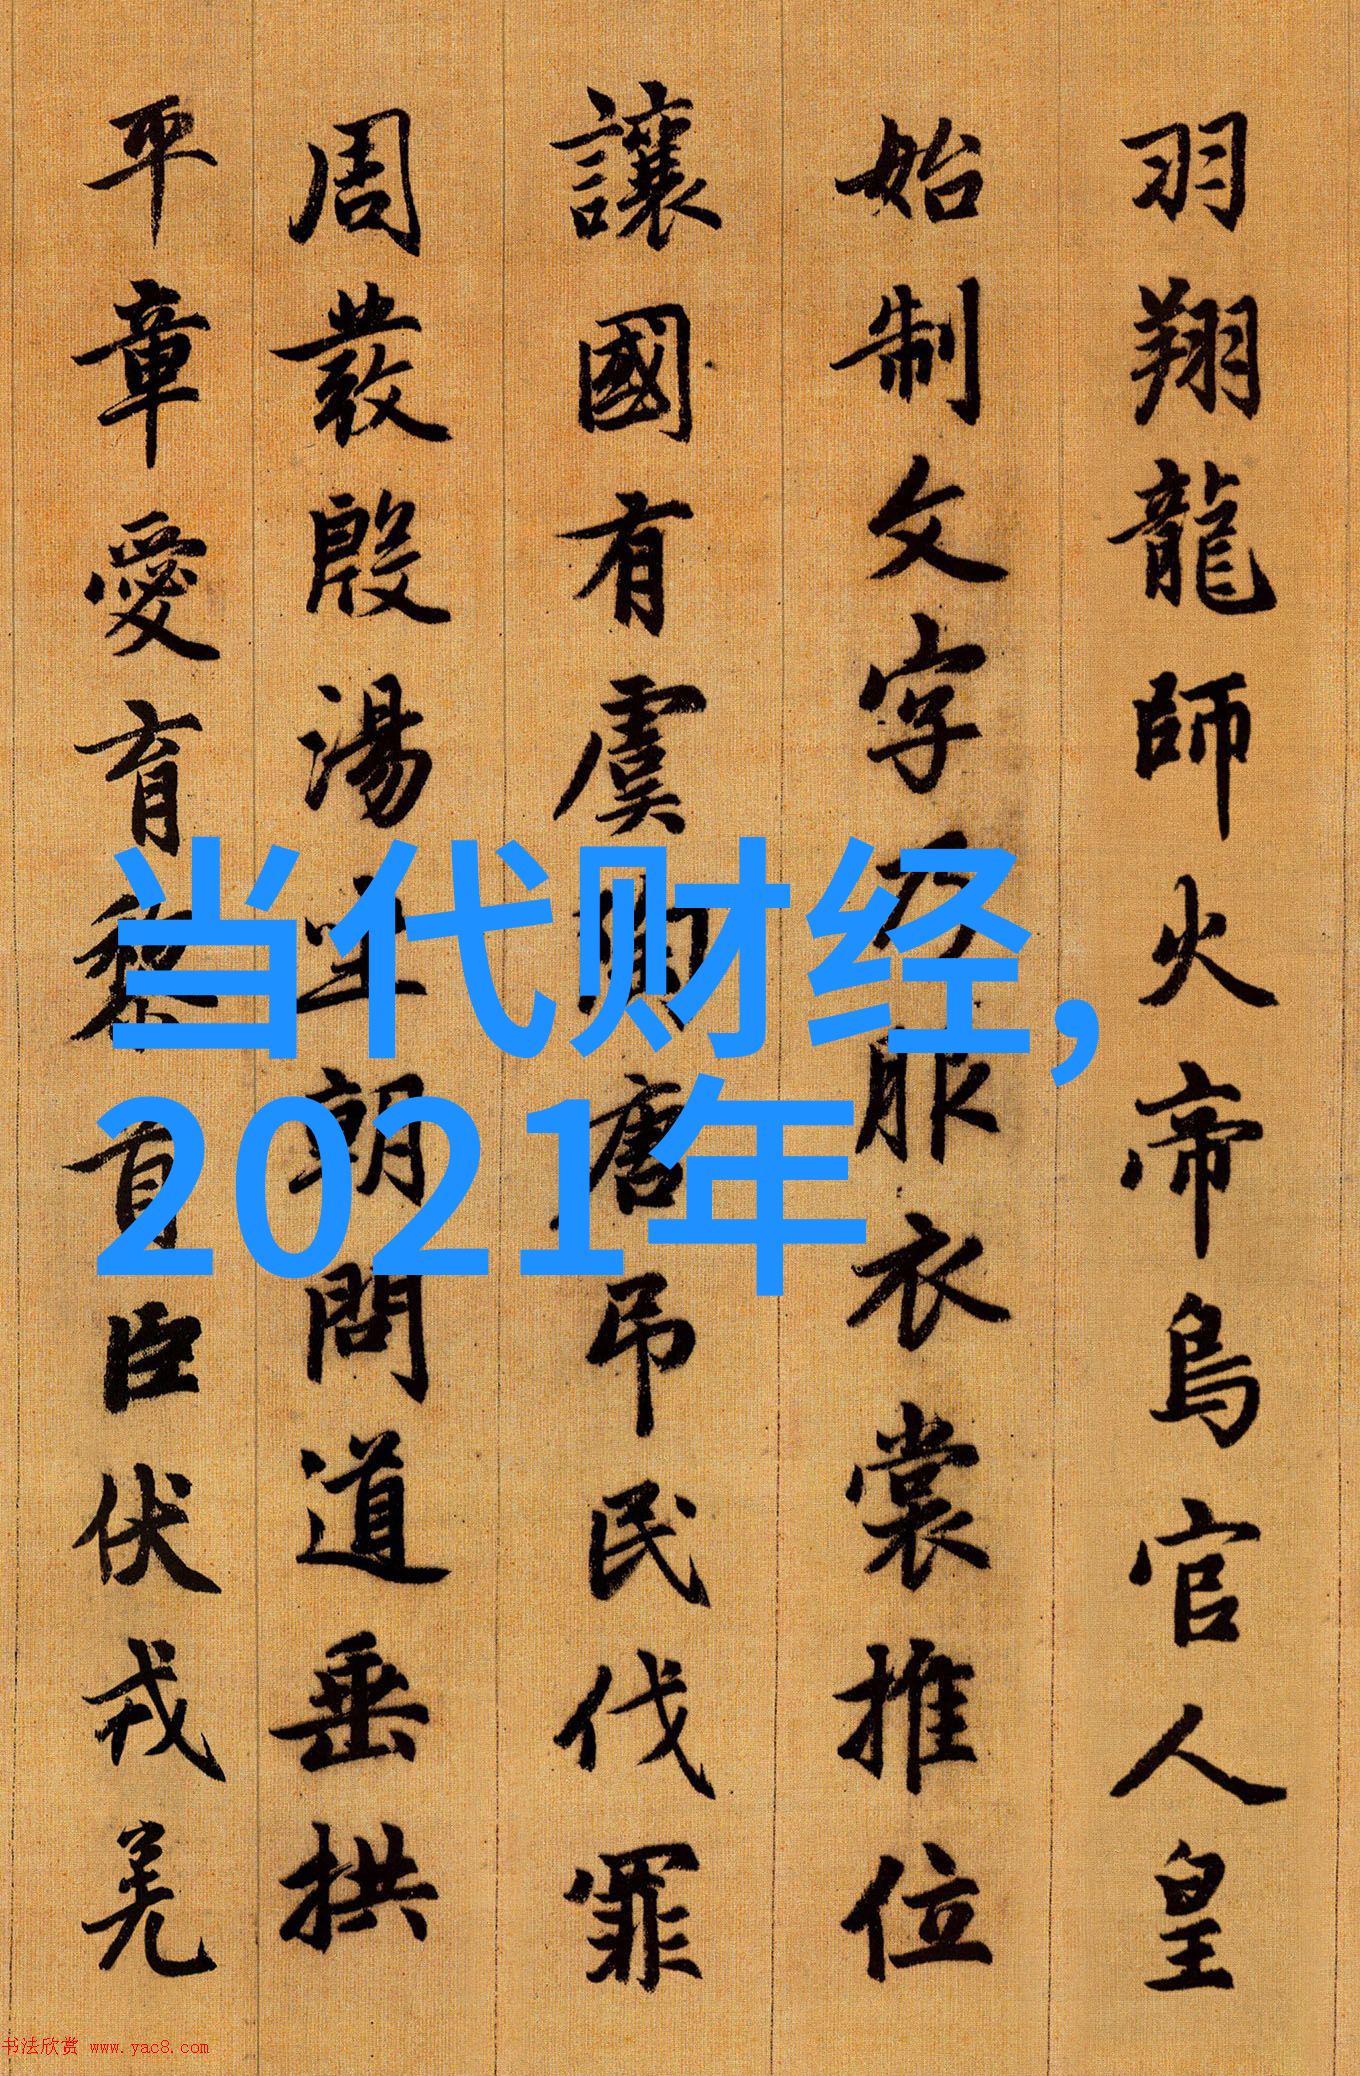 羽翔龍師火帝鳥官人皇
始制文字乃服衣裳推位
讓國有虞陶唐吊民伐罪
周發殷湯坐朝問道垂拱
平章愛育黎首臣伏戎羌
当代财经,
2021年
书法欣赏 www.yac8.com